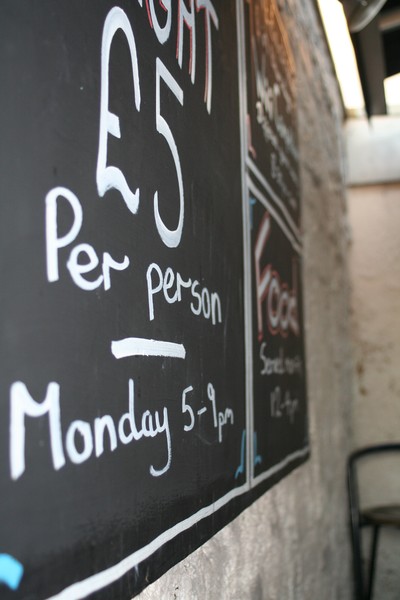 £5
Per person
Monday 5-9pm
Food
Served
12-4pm